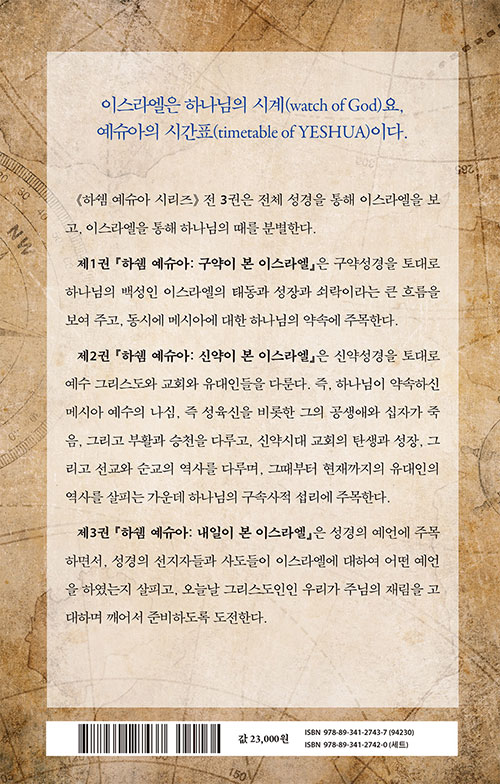 이스라엘은 하나님의 시계(watch of God)요,
예슈아의 시간표(timetable of YESHUA)이다.
《하쉠 예슈아 시리즈》 전 3권은 전체 성경을 통해 이스라엘을 보
고, 이스라엘을 통해 하나님의 때를 분별한다.
제1권 『하쉠 예슈아: 구약이 본 이스라엘』은 구약성경을 토대로
하나님의 백성인 이스라엘의 태동과 성장과 쇠락이라는 큰 흐름을
보여 주고, 동시에 메시아에 대한 하나님의 약속에 주목한다.
제2권 『하쉠 예슈아: 신약이 본 이스라엘』은 신약성경을 토대로
예수 그리스도와 교회와 유대인들을 다룬다. 즉, 하나님이 약속하신
메시아 예수의 나심, 즉 성육신을 비롯한 그의 공생애와 십자가 죽
음, 그리고 부활과 승천을 다루고, 신약시대 교회의 탄생과 성장, 그
리고 선교와 순교의 역사를 다루며, 그때부터 현재까지의 유대인의
역사를 살피는 가운데 하나님의 구속사적 섭리에 주목한다.
제3권 『하쉠 예슈아: 내일이 본 이스라엘』은 성경의 예언에 주목
하면서, 성경의 선지자들과 사도들이 이스라엘에 대하여 어떤 예언
을 하였는지 살피고, 오늘날 그리스도인인 우리가 주님의 재림을 고
대하며 깨어서 준비하도록 도전한다.
NW
값 23,000원
ISBN 978-89-341-2743-7 (94230)
ISBN 978-89-341-2742-0 (세트)